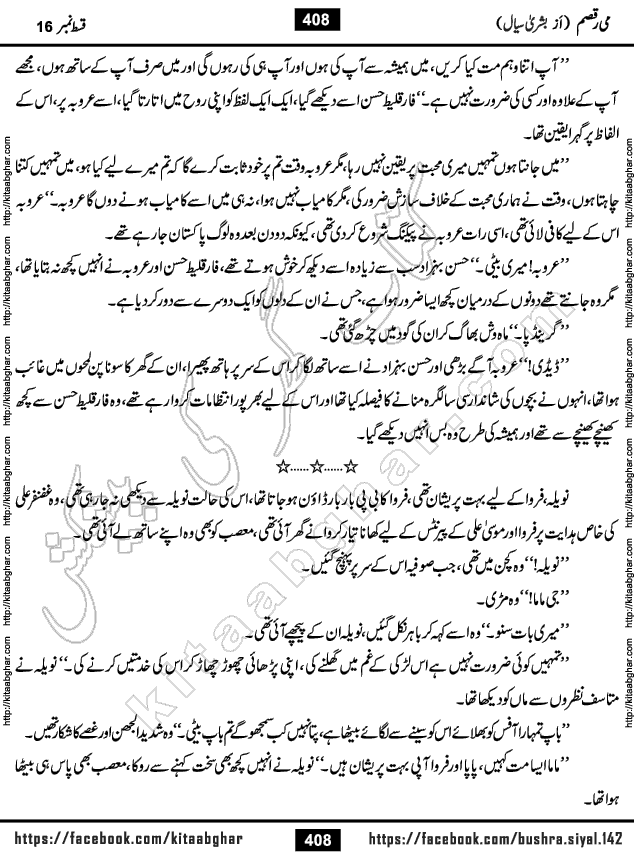 می رقصم (از بشریٰ سیال) 408 قسط نمبر 16
’’آپ اتنا وہم مت کیا کریں، میں ہمیشہ سے آپ کی ہوں اور آپ ہی کی رہوں گی اور میں صرف آپ کے ساتھ ہوں، مجھے
آپ کے علاوہ اور کسی کی ضرورت نہیں ہے۔‘‘ فارقلیط حسن اسے دیکھے گیا، ایک ایک لفظ کو اپنی روح میں اتارتا گیا، اسے عروبہ پر، اس کے
الفاظ پر گہرا یقین تھا۔
’’میں جانتا ہوں تمہیں میری محبت پر یقین نہیں رہا، مگر عروبہ وقت تم پر خود ثابت کرے گا کہ تم میرے لیے کیا ہو، میں تمہیں کتنا
چاہتا ہوں، وقت نے ہماری محبت کے خلاف سازش ضرور کی، مگر کامیاب نہیں ہوا، نہ ہی میں اسے کامیاب ہونے دوں گا عروبہ۔‘‘ عروبہ
اس کے لیے کافی لائی تھی، اسی رات عروبہ نے پیکنگ شروع کر دی تھی، کیونکہ دو دن بعد وہ لوگ پاکستان جا رہے تھے۔
’’عروبہ! میری بیٹی۔‘‘ حسن بہزاد سب سے زیادہ اسے دیکھ کر خوش ہوتے تھے، فارقلیط حسن اور عروبہ نے انہیں کچھ نہ بتایا تھا،
مگر وہ جانتے تھے دونوں کے درمیان کچھ ایسا ضرور ہوا ہے، جس نے ان کے دلوں کو ایک دوسرے سے دور کر دیا ہے۔
’’گرینڈ پا۔‘‘ ماہ وش بھاگ کر ان کی گود میں چڑھ گئی تھی۔
’’ڈیڈی!‘‘ عروبہ آگے بڑھی اور حسن بہزاد نے اسے ساتھ لگا کر اس کے سر پر ہاتھ پھیرا، ان کے گھر کا سونا پن لمحوں میں غائب
ہوا تھا، انہوں نے بچوں کی شاندار سی سالگرہ منانے کا فیصلہ کیا تھا اور اس کے لیے بھرپور انتظامات کروا رہے تھے، وہ فارقلیط حسن سے کچھ
کھینچے کھینچے سے تھے اور ہمیشہ کی طرح وہ بس انہیں دیکھے گیا۔
☆......☆......☆
نویلہ، فروا کے لیے بہت پریشان تھی، فروا کا بی پی بار بار ڈاؤن ہو جاتا تھا، اس کی حالت نویلہ سے دیکھی نہ جا رہی تھی، وہ غضنفر علی
کی خاص ہدایت پر فروا اور موسیٰ علی کے پیرنٹس کے لیے کھانا تیار کروانے گھر آئی تھی، معصب کو بھی وہ اپنے ساتھ لے آئی تھی۔
’’نویلہ!‘‘ وہ کچن میں تھی، جب صوفیہ اس کے سر پر پہنچ گئیں۔
’’جی ماما!‘‘ وہ مڑی۔
’’میری بات سنو۔‘‘ وہ اسے کہہ کر باہر نکل گئیں، نویلہ ان کے پیچھے آئی تھی۔
’’تمہیں کوئی ضرورت نہیں ہے اس لڑکی کے غم میں گھلنے کی، اپنی پڑھائی چھوڑ چھاڑ کر اس کی خدمتیں کرنے کی۔‘‘ نویلہ نے
متاسف نظروں سے ماں کو دیکھا تھا۔
’’باپ تمہارا آفس کو بھلائے اس کو سینے سے لگائے بیٹھا ہے، پتا نہیں کب سمجھو گے تم باپ بیٹی۔‘‘ وہ شدید الجھن اور غصے کا شکار تھیں۔
’’ماما ایسا مت کہیں، پاپا اور فروا آپی بہت پریشان ہیں۔‘‘ نویلہ نے انہیں کچھ بھی سخت کہنے سے روکا، معصب بھی پاس ہی بیٹھا
ہوا تھا۔
http://kitaabghar.com http://kitaabghar.com http://kitaabghar.com http://kitaabghar.com http://kitaabghar.com http://kitaabghar.com
http://kitaabghar.com http://kitaabghar.com http://kitaabghar.com http://kitaabghar.com http://kitaabghar.com http://kitaabghar.com
کتاب گھر کی پیشکش
kitaabghar.com
https://facebook.com/kitaabghar 408 https://facebook.com/bushra.siyal.142